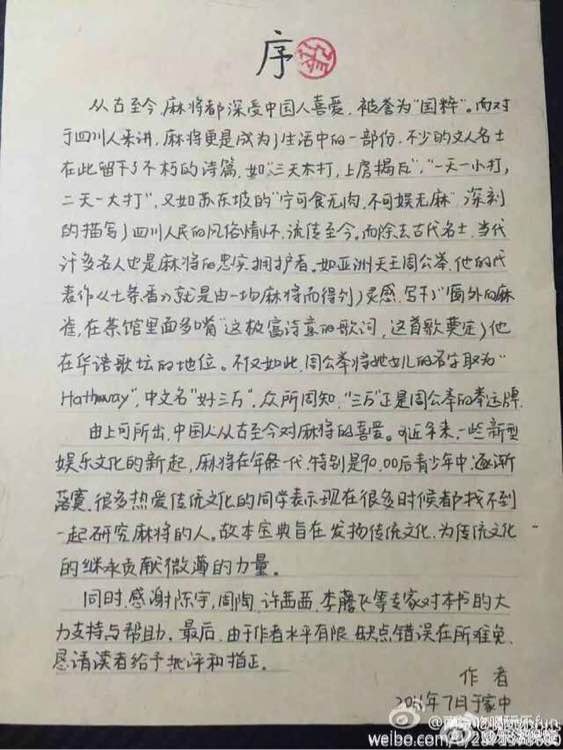 序
从古至今,麻将都深受中国人喜爱,被誉为"国粹"。而对
于四川人来讲,麻将更是成为了生活中的一部份,不少的文人名士
在此留下了不朽的诗篇,如"三天不打,上房揭瓦","一天一小打,
二天一大打",又如苏东坡的"宁可食无肉,不可娱无麻"深刻
的描写了四川人民的风俗情怀,流传至今。而除去古代名士,当代
许多名人也是麻将的忠实拥护者。如亚洲天王周公举,他的代
表作《七条香》就是由一场麻将而得到了灵感,写下了"窗外的麻
雀,在茶馆里面多嘴"这极富诗意的歌词,这首歌奠定了他
在华语歌坛的地位。不仅如此,周公举将她女儿的名字取为"
Hathaway",中文名"好三万",众所周知,"三万"正是周公举的幸运牌.
由上可所出,中国人从古至今对麻将的喜爱。近年来,一些新型
娱乐文化的新起,麻将在年轻一代,特别是90,00后青少年中,逐渐
落寞,很多热爱传统文化的同学表示现在很多时候都找不到
一起研究麻将的人。故本宝典旨在发扬传统文化,为传统文化
的继承贡献微薄的力量。
同时,感谢陈宇,周陶,许茜茜,李飞等专家对本书的大
力支持与帮助。最后,由于作者水平有限,缺点错误在所难免,
恳请读者给予批评和指正。
作者
年7月于家中
weibo.com/